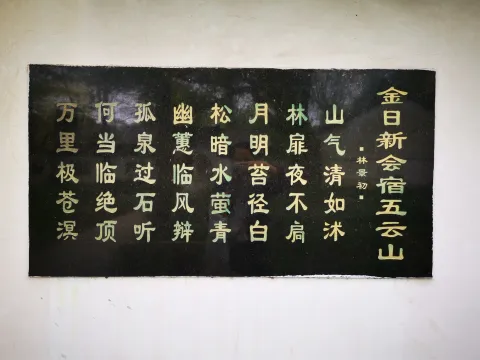 金日新会宿五云山
林景初
山气清如沐
林扉夜不扃
月明苔径白
松暗水萤青
幽蕙临风辨
孤泉过石听
何当临绝顶
万里极苍溟